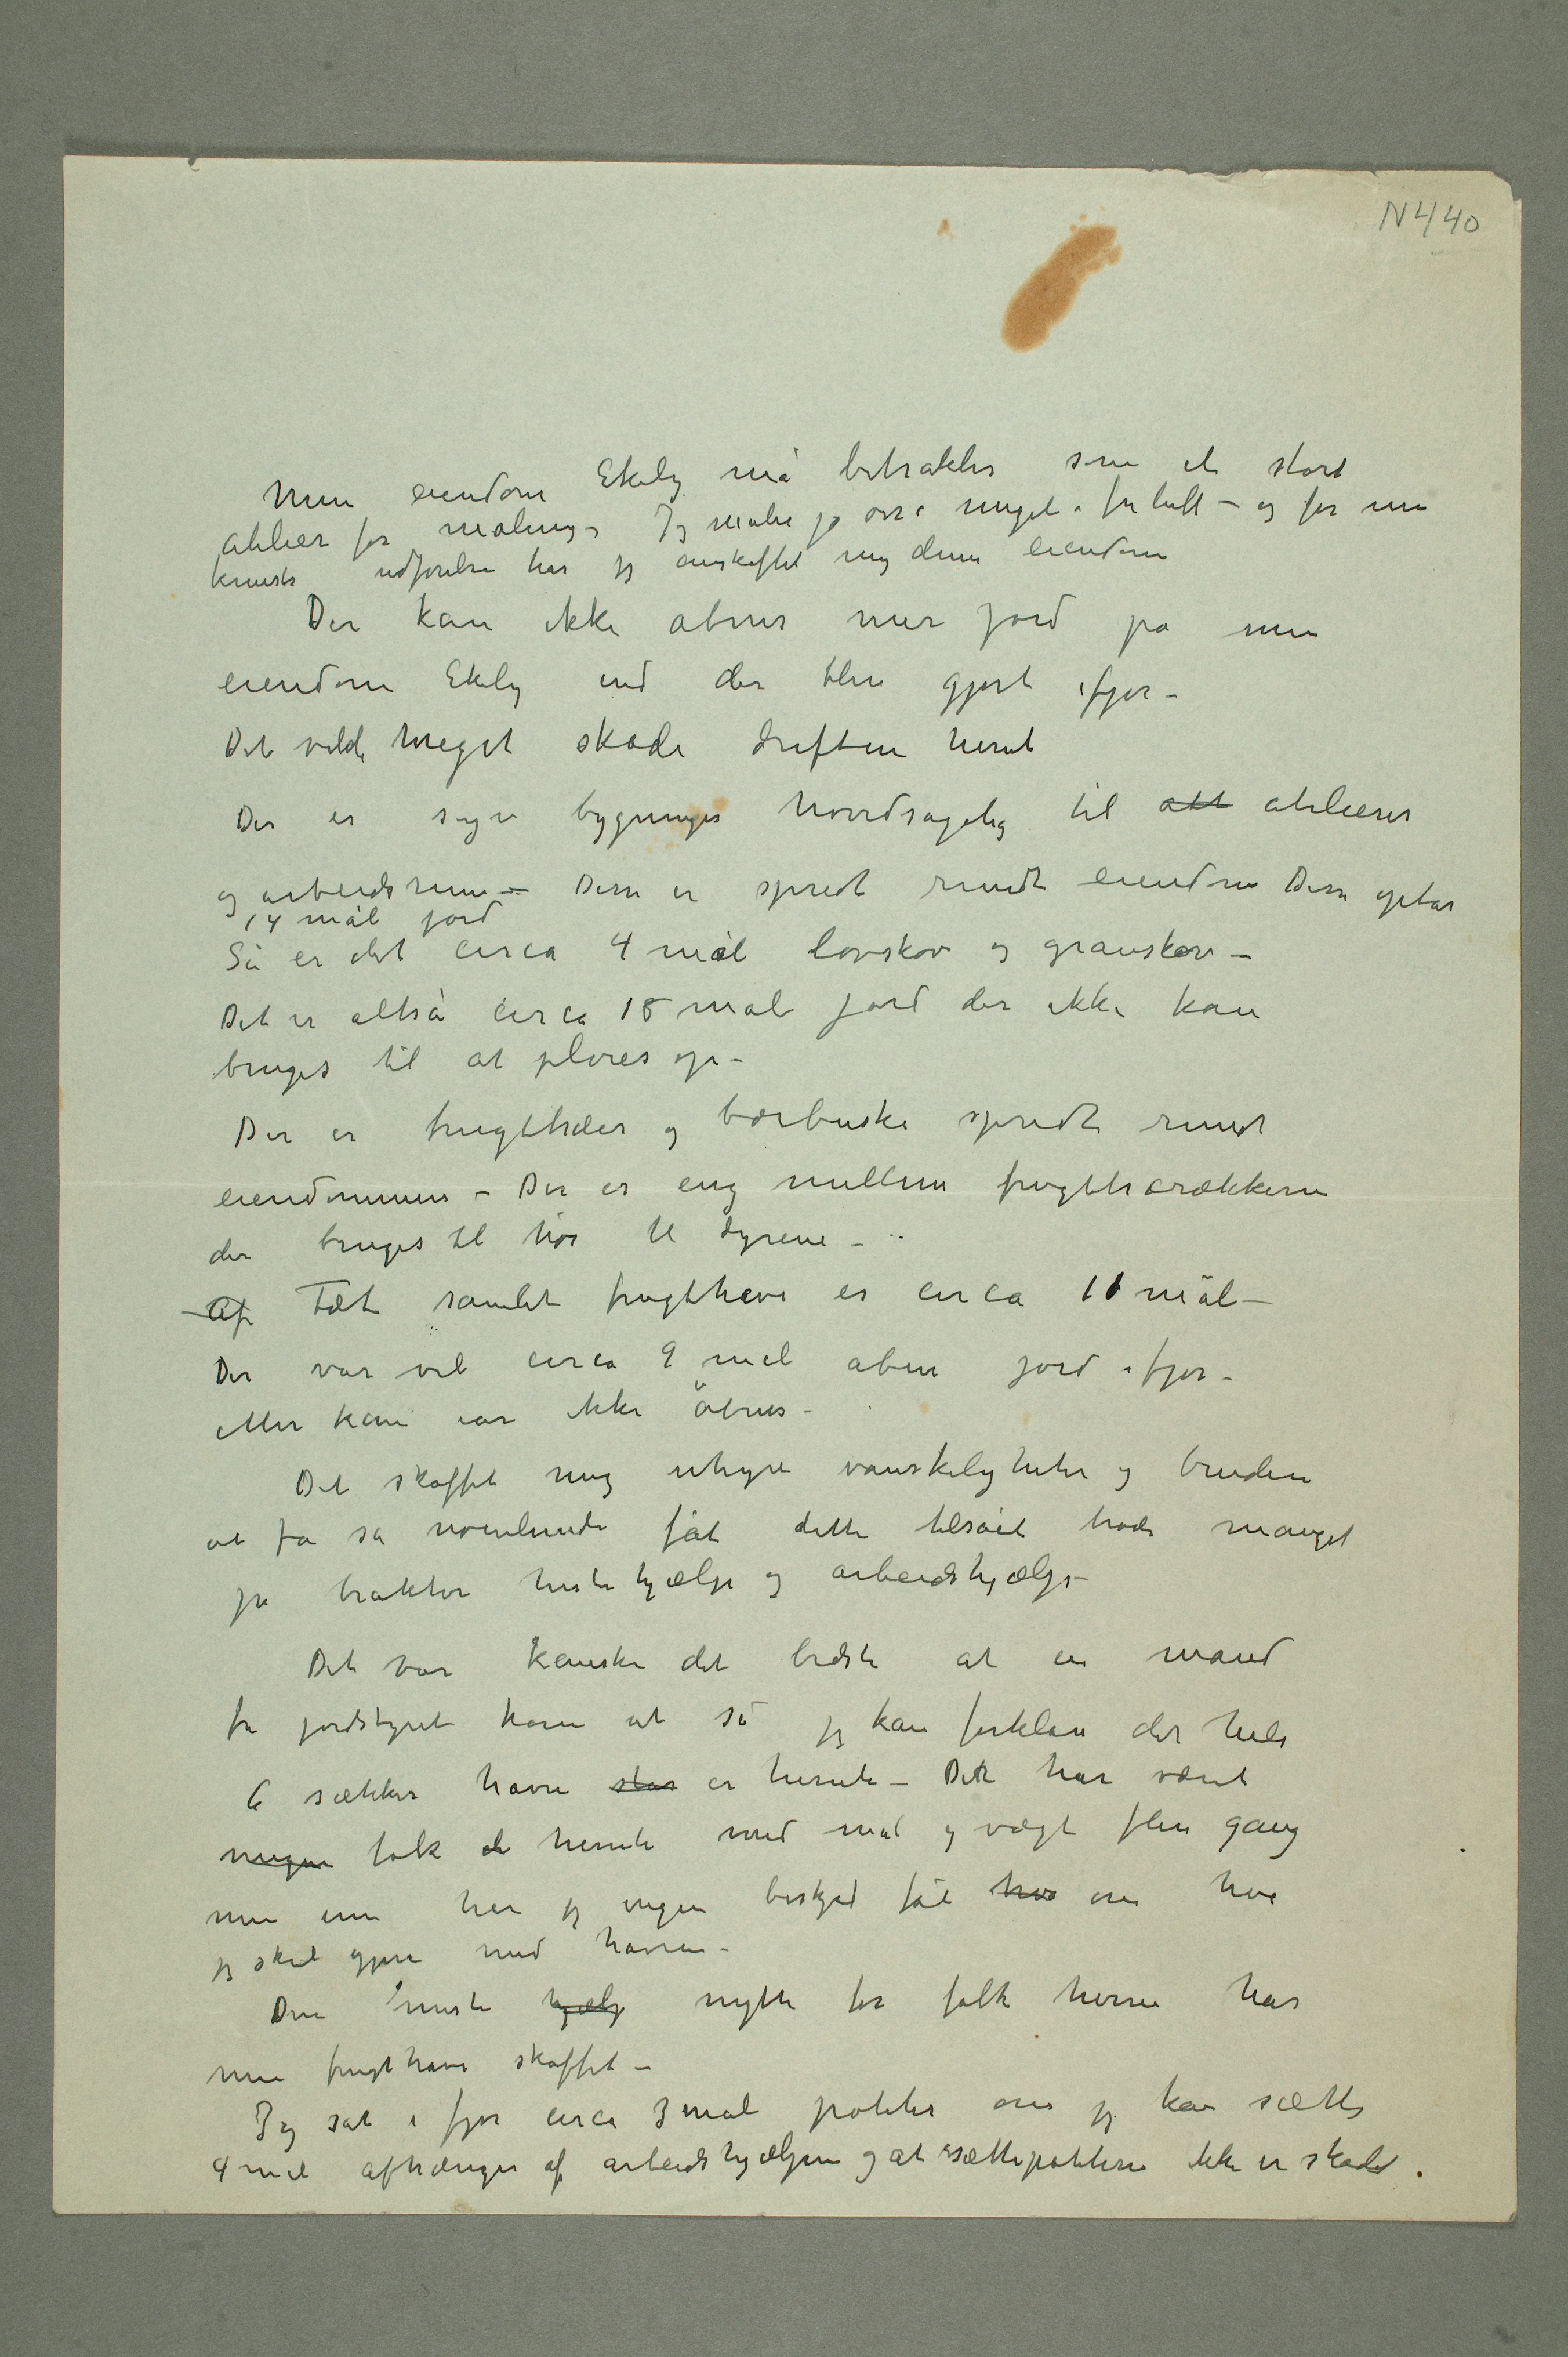 N 440
Min eiendom Ekely må betraktes som et stort
atelier for maling – Jeg maler jo også meget i fri luft – og for min
kunsts udførelse har jeg anskaffet mig denne eiendom
Der kan ikke åbnes mer jord på min
eiendom Ekely end der blev gjort ifjor –
Det vilde meget skade driften herute
Der er syv bygninger hovedsagelig til att atelierer
og arbeidsrum – Disse er spredt rundt eiendom Disse optar
14 mål jord
Så er det circa 4 mål løvskov og granskov –
Det er altså circa 18 mål jord der ikke kan
bruges til at pløies op –
Der er frugttrær og bærbuske spredt rundt
eiendommen – Der er eng mellem frugttrærækkerne
der bruges til høi til dyrene –
Af Tæt samlet frugthave er circa 11 mål –
Der var vel circa 9 mål åben jord ifjor –
Mer kan iår ikke åbnes –
Det skaffet mig uhyre vanskeligheter og bryderi
at få så noenlunde fåt dette tilsået trods manget
på traktor hestehjælp og arbeidshjælp –
Det var kanske det bedste at en mand
fra jordstyret kom ut så jeg kan forklare det hele
6 sækker havre står er herute – Det har været
mugne folk herute med mål og vægt flere gang
men enn har jeg ingen beskjed fåt hva om hva
jeg skal gjøre med havren –
Den meste hjælp nytte for folk herute har
min frugthave skaffet –
Jeg sat i fjor circa 3 mål poteter om jeg kan sætte
4 mål afhænger af arbeidshjælpen og at sættepoteterne ikke er skadet.